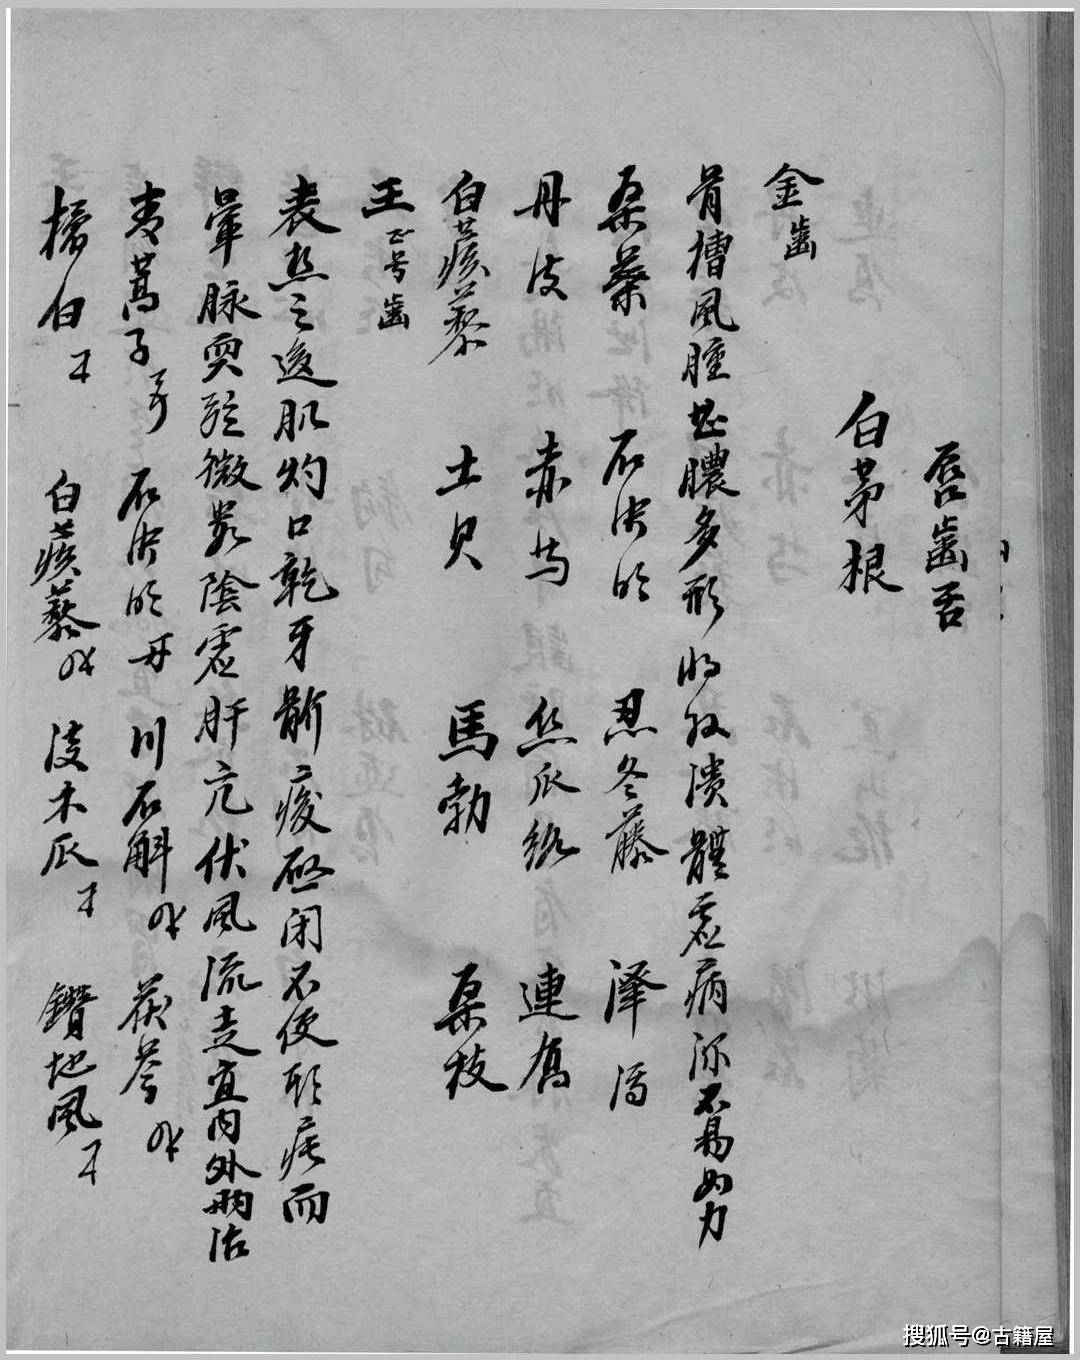 唇齒舌
白茅根
金 齒
骨槽風腫甚膿多形 潰體虛病深不易力
桑葉 石決明 忍冬藤 澤瀉
丹皮 赤芍 絲瓜絡 連翹
白蒺藜 土貝 馬勃 桑枝
王 齒
表熱之後肌灼口乾牙齘痠 閉不便形疾而
暈脈耎弦微數陰虛肝亢伏風流走宜內外兩治
青蒿子 石決明 川石斛 茯苓
橘白 白蒺藜 木瓜 鑽地風
搜狐号@古籍屋